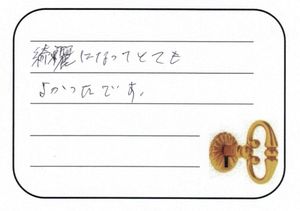 綺麗になってとても
よかったです。